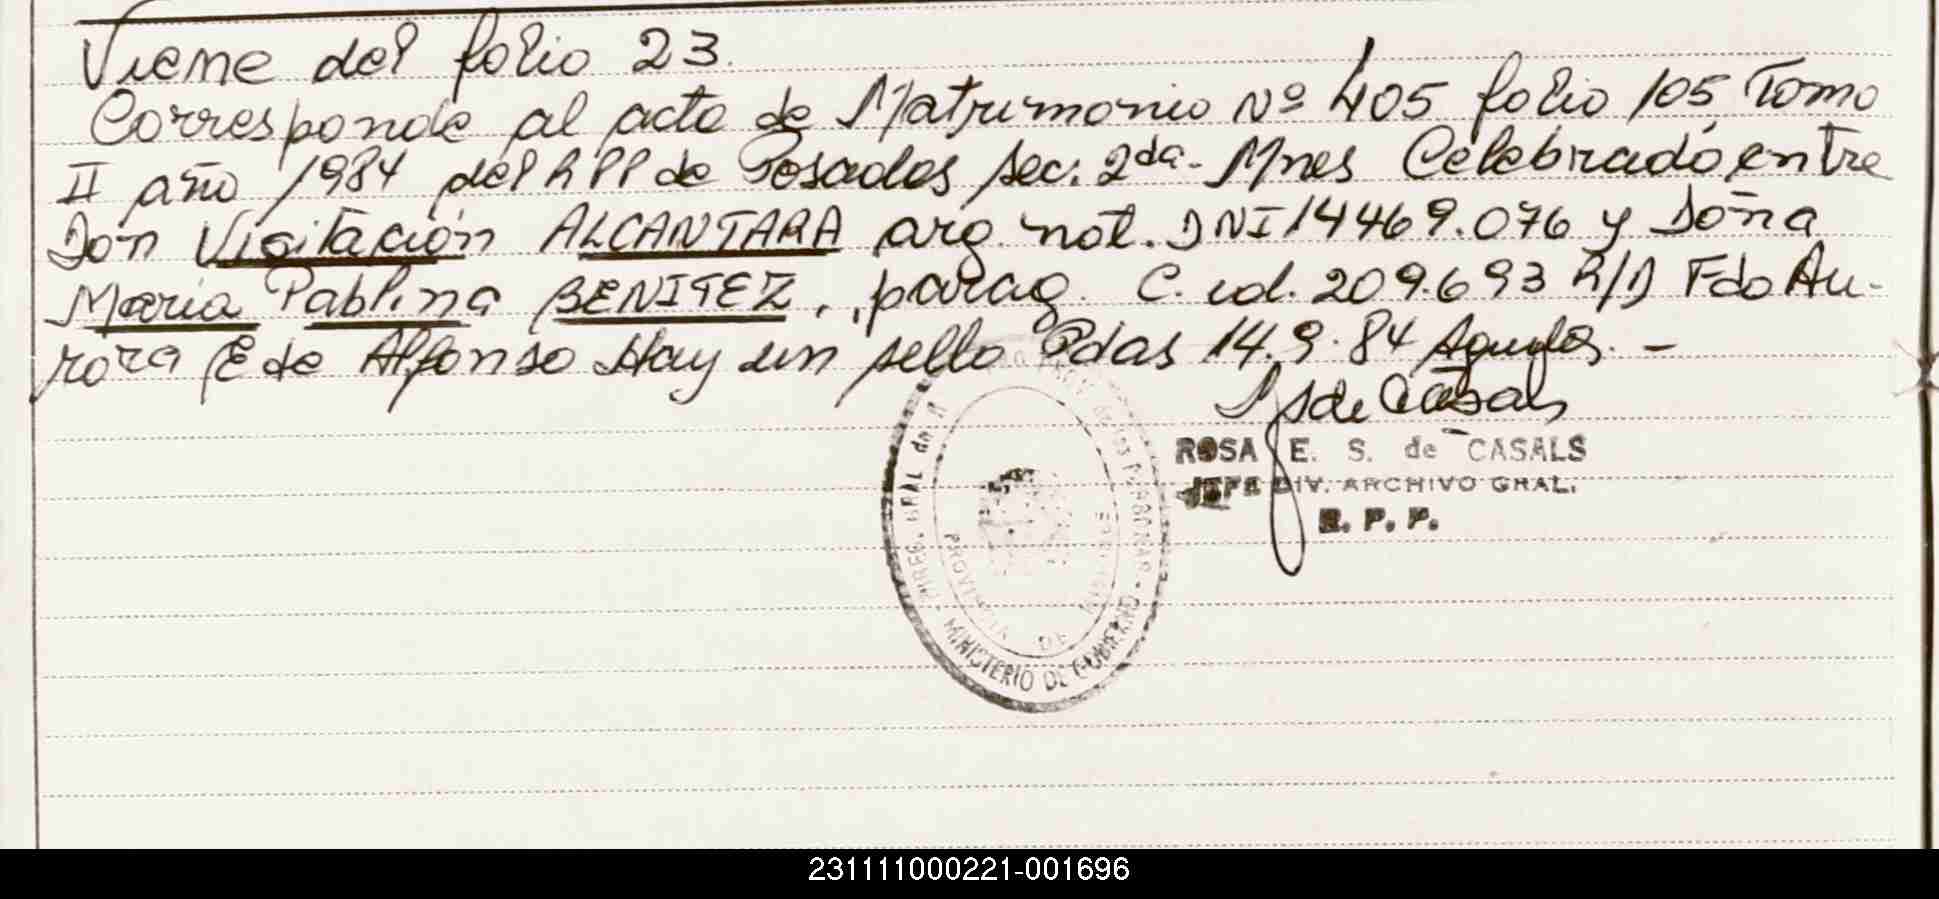 Viene del folio 23.
Corresponde al acta de Matrimonio Nº 405 folio 105 Tomo
II año 1984 del RPP de Posadas sec. 2da. Mnes Celebrado, entre
Don Visitación ALCANTARA arg. nat. DNI 14469.076 y Doña
Maria Pablina BENITEZ, parag. C. id. 209.693 R/D Fdo Au-
rora E de Alfonso Hay un sello Pdas 14.9.84
S de Casals
ROSA E. S. de CASALS
JEFE DIV. ARCHIVO GRAL.
R. P. P.
DIREC. GRAL de
de las PERSONAS -
PROVINCIA DE MISIONES
MINISTERIO DE GOBIERNO
231111000221-001696